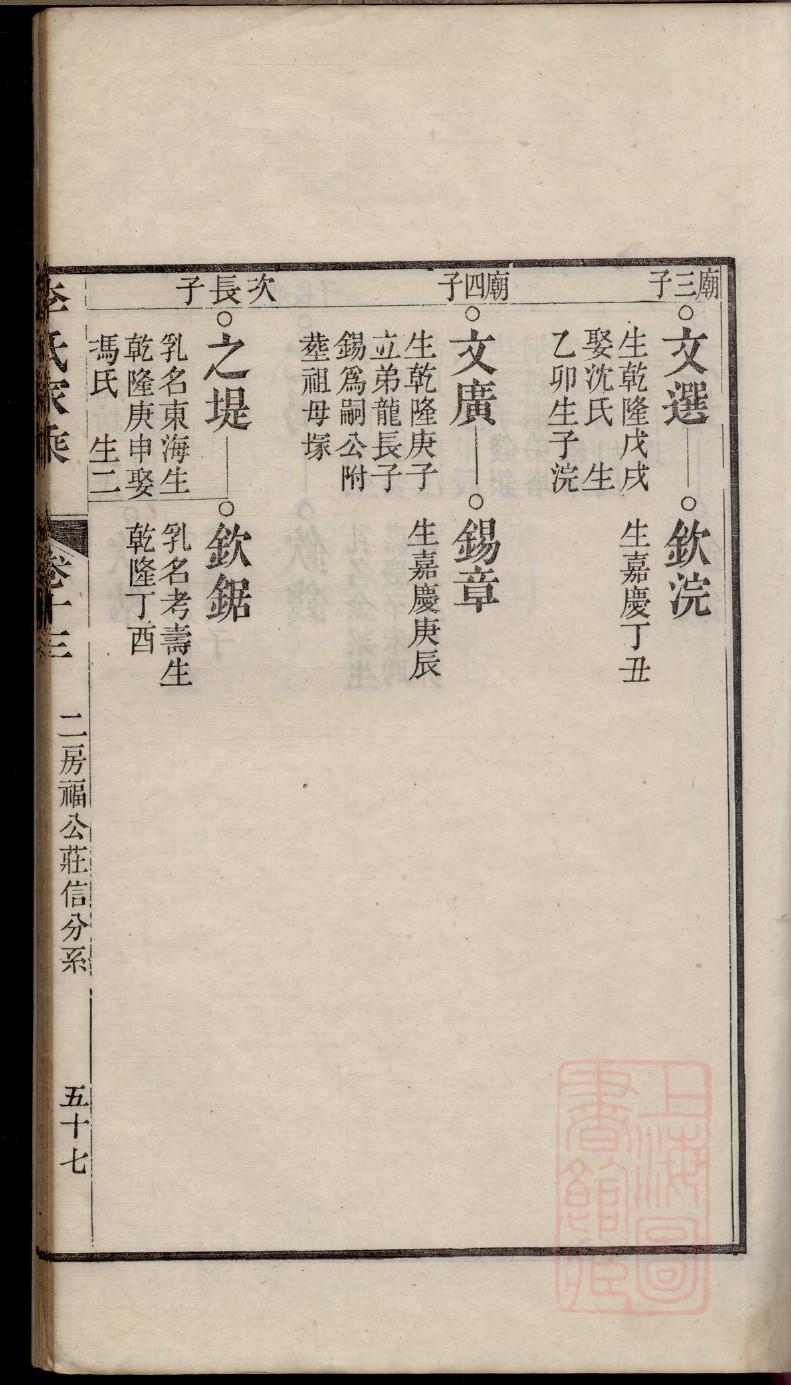 廟三子
文選
生乾隆戊戌
娶沈氏 生
乙卯生子浣
欽浣
生嘉慶丁丑
廟四子
文廣
生乾隆庚子
立弟龍長子
錫爲嗣公附
塟祖母塚
錫章
生嘉慶庚辰
次長子
之堤
乳名東海生
乾隆庚申娶
馮氏 生二
欽鋸
乳名考壽生
乾隆丁酉
李氏家乘
卷十三
二房福公莊信分系
五十七
上海圖
書館藏